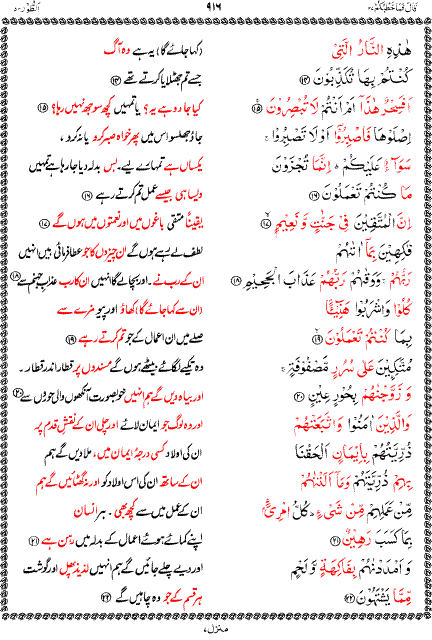 قَالَ فَمَا خَطْبُكُمْ ۲۷
۹۱۶
اَلطُّوْر ۵۲
هٰذِهِ النَّارُ الَّتِيْ
(کہا جائے گا) یہ ہے وہ آگ
كُنْتُمْ بِهَا تُكَذِّبُوْنَ ۱۴
جسے تم جھٹلایا کرتے تھے ۱۴
اَفَسِحْرٌ هٰذَاۤ اَمْ اَنْتُمْ لَا تُبْصِرُوْنَ ۱۵
کیا جادو ہے یہ؟ یا تمہیں کچھ سوجھ نہیں رہا؟ ۱۵
اِصْلَوْهَا فَاصْبِرُوْۤا اَوْ لَا تَصْبِرُوْا ۚ
جاؤ جھلسو اس میں پھر خواہ صبر کرو یا نہ کرو،
سَوَآءٌ عَلَيْكُمْ ؕ اِنَّمَا تُجْزَوْنَ
یکساں ہے تمہارے لیے۔ بس بدلہ دیا جا رہا ہے تمہیں
مَا كُنْتُمْ تَعْمَلُوْنَ ۱۶
ویسا ہی جیسے عمل تم کرتے رہے ۱۶
اِنَّ الْمُتَّقِيْنَ فِيْ جَنّٰتٍ وَّ نَعِيْمٍ ۱۷
یقیناً متقی باغوں میں اور نعمتوں میں ہوں گے ۱۷
فٰكِهِيْنَ بِمَاۤ اٰتٰىهُمْ
لطف لے رہے ہوں گے ان چیزوں کا جو عطا فرمائی ہیں انہیں
رَبُّهُمْ ۚ وَوَقٰىهُمْ رَبُّهُمْ عَذَابَ الْجَحِيْمِ ۱۸
ان کے رب نے۔ اور بچا لے گا انہیں ان کا رب عذاب جہنم سے ۱۸
كُلُوْا وَاشْرَبُوْا هَنِيْٓئًۢا
(ان سے کہا جائے گا) کھاؤ اور پیو مزے سے
بِمَا كُنْتُمْ تَعْمَلُوْنَ ۱۹
صلے میں ان اعمال کے جو تم کرتے رہے ۱۹
مُتَّكِـِٕيْنَ عَلٰى سُرُرٍ مَّصْفُوْفَةٍ ۚ
وہ تکیے لگائے بیٹھے ہوں گے مسندوں پر قطار اندر قطار۔
وَ زَوَّجْنٰهُمْ بِحُوْرٍ عِيْنٍ ۲۰
اور بیاہ دیں گے ہم انہیں خوبصورت آنکھوں والی حوروں سے ۲۰
وَالَّذِيْنَ اٰمَنُوْا وَاتَّبَعَتْهُمْ
اور وہ لوگ جو ایمان لائے اور چلی ان کے نقش قدم پر
ذُرِّيَّتُهُمْ بِاِيْمَانٍ اَلْحَقْنَا
ان کی اولاد کسی درجۂ ایمان میں، ملا دیں گے ہم
بِهِمْ ذُرِّيَّتَهُمْ وَمَاۤ اَلَتْنٰهُمْ
ان کے ساتھ ان کی اس اولاد کو اور نہ گھٹائیں گے ہم
مِّنْ عَمَلِهِمْ مِّنْ شَيْءٍ ؕ كُلُّ امْرِئٍۢ
ان کے عمل میں سے کچھ بھی۔ ہر انسان
بِمَا كَسَبَ رَهِيْنٌ ۲۱
اپنے کمائے ہوئے اعمال کے بدلہ میں رہن ہے ۲۱
وَ اَمْدَدْنٰهُمْ بِفَاكِهَةٍ وَّ لَحْمٍ
اور دیے چلے جائیں گے ہم انہیں لذیذ پھل اور گوشت
مِّمَّا يَشْتَهُوْنَ ۲۲
ہر قسم کے جو وہ چاہیں گے ۲۲
منزل ۷